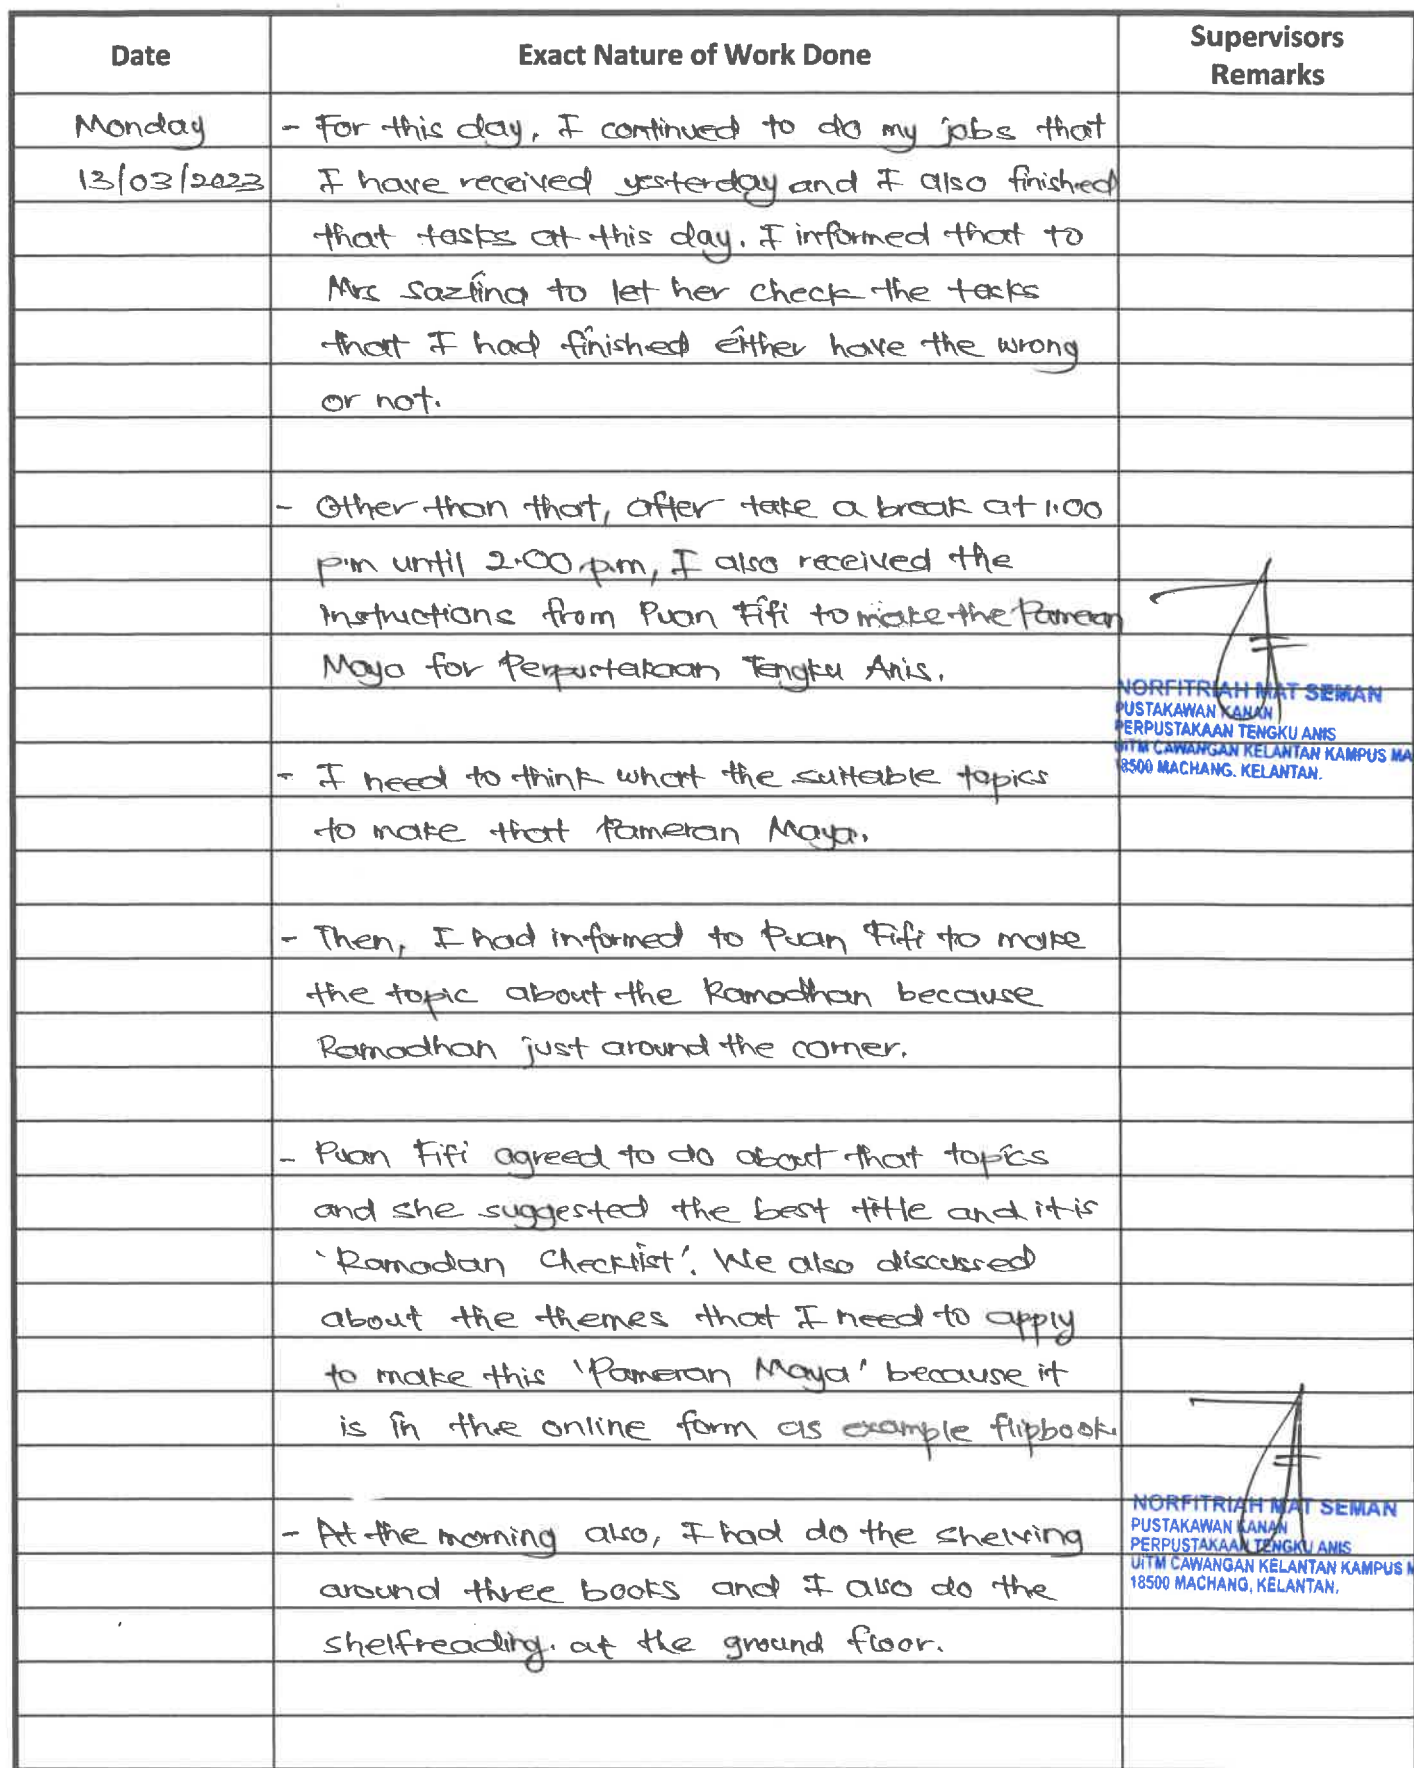 Date
Exact Nature of Work Done
Supervisors
Remarks
Monday
13/03/2023
- For this day, I continued to do my jobs that
I have received yesterday and I also finished
that tasks at this day. I informed that to
Mrs Sazlina to let her check the tasks
that I had finished either have the wrong
or not.
- Other than that, after take a break at 1.00
p.m until 2.00 p.m, I also received the
instructions from Puan Fifi to make the Pameran
Maya for Perpustakaan Tengku Anis.
NORFITRIAH MAT SEMAN
PUSTAKAWAN KANAN
PERPUSTAKAAN TENGKU ANIS
UiTM CAWANGAN KELANTAN KAMPUS MA
18500 MACHANG. KELANTAN.
- I need to think what the suitable topics
to make that Pameran Maya.
- Then, I had informed to Puan Fifi to make
the topic about the Ramadhan because
Ramadhan just around the corner.
- Puan Fifi agreed to do about that topics
and she suggested the best title and it is
'Ramadan Checklist'. We also discussed
about the themes that I need to apply
to make this 'Pameran Maya' because it
is in the online form as example flipbook.
- At the morning also, I had do the shelving
around three books and I also do the
shelfreading. at the ground floor.
NORFITRIAH MAT SEMAN
PUSTAKAWAN KANAN
PERPUSTAKAAN TENGKU ANIS
UiTM CAWANGAN KELANTAN KAMPUS M
18500 MACHANG, KELANTAN.